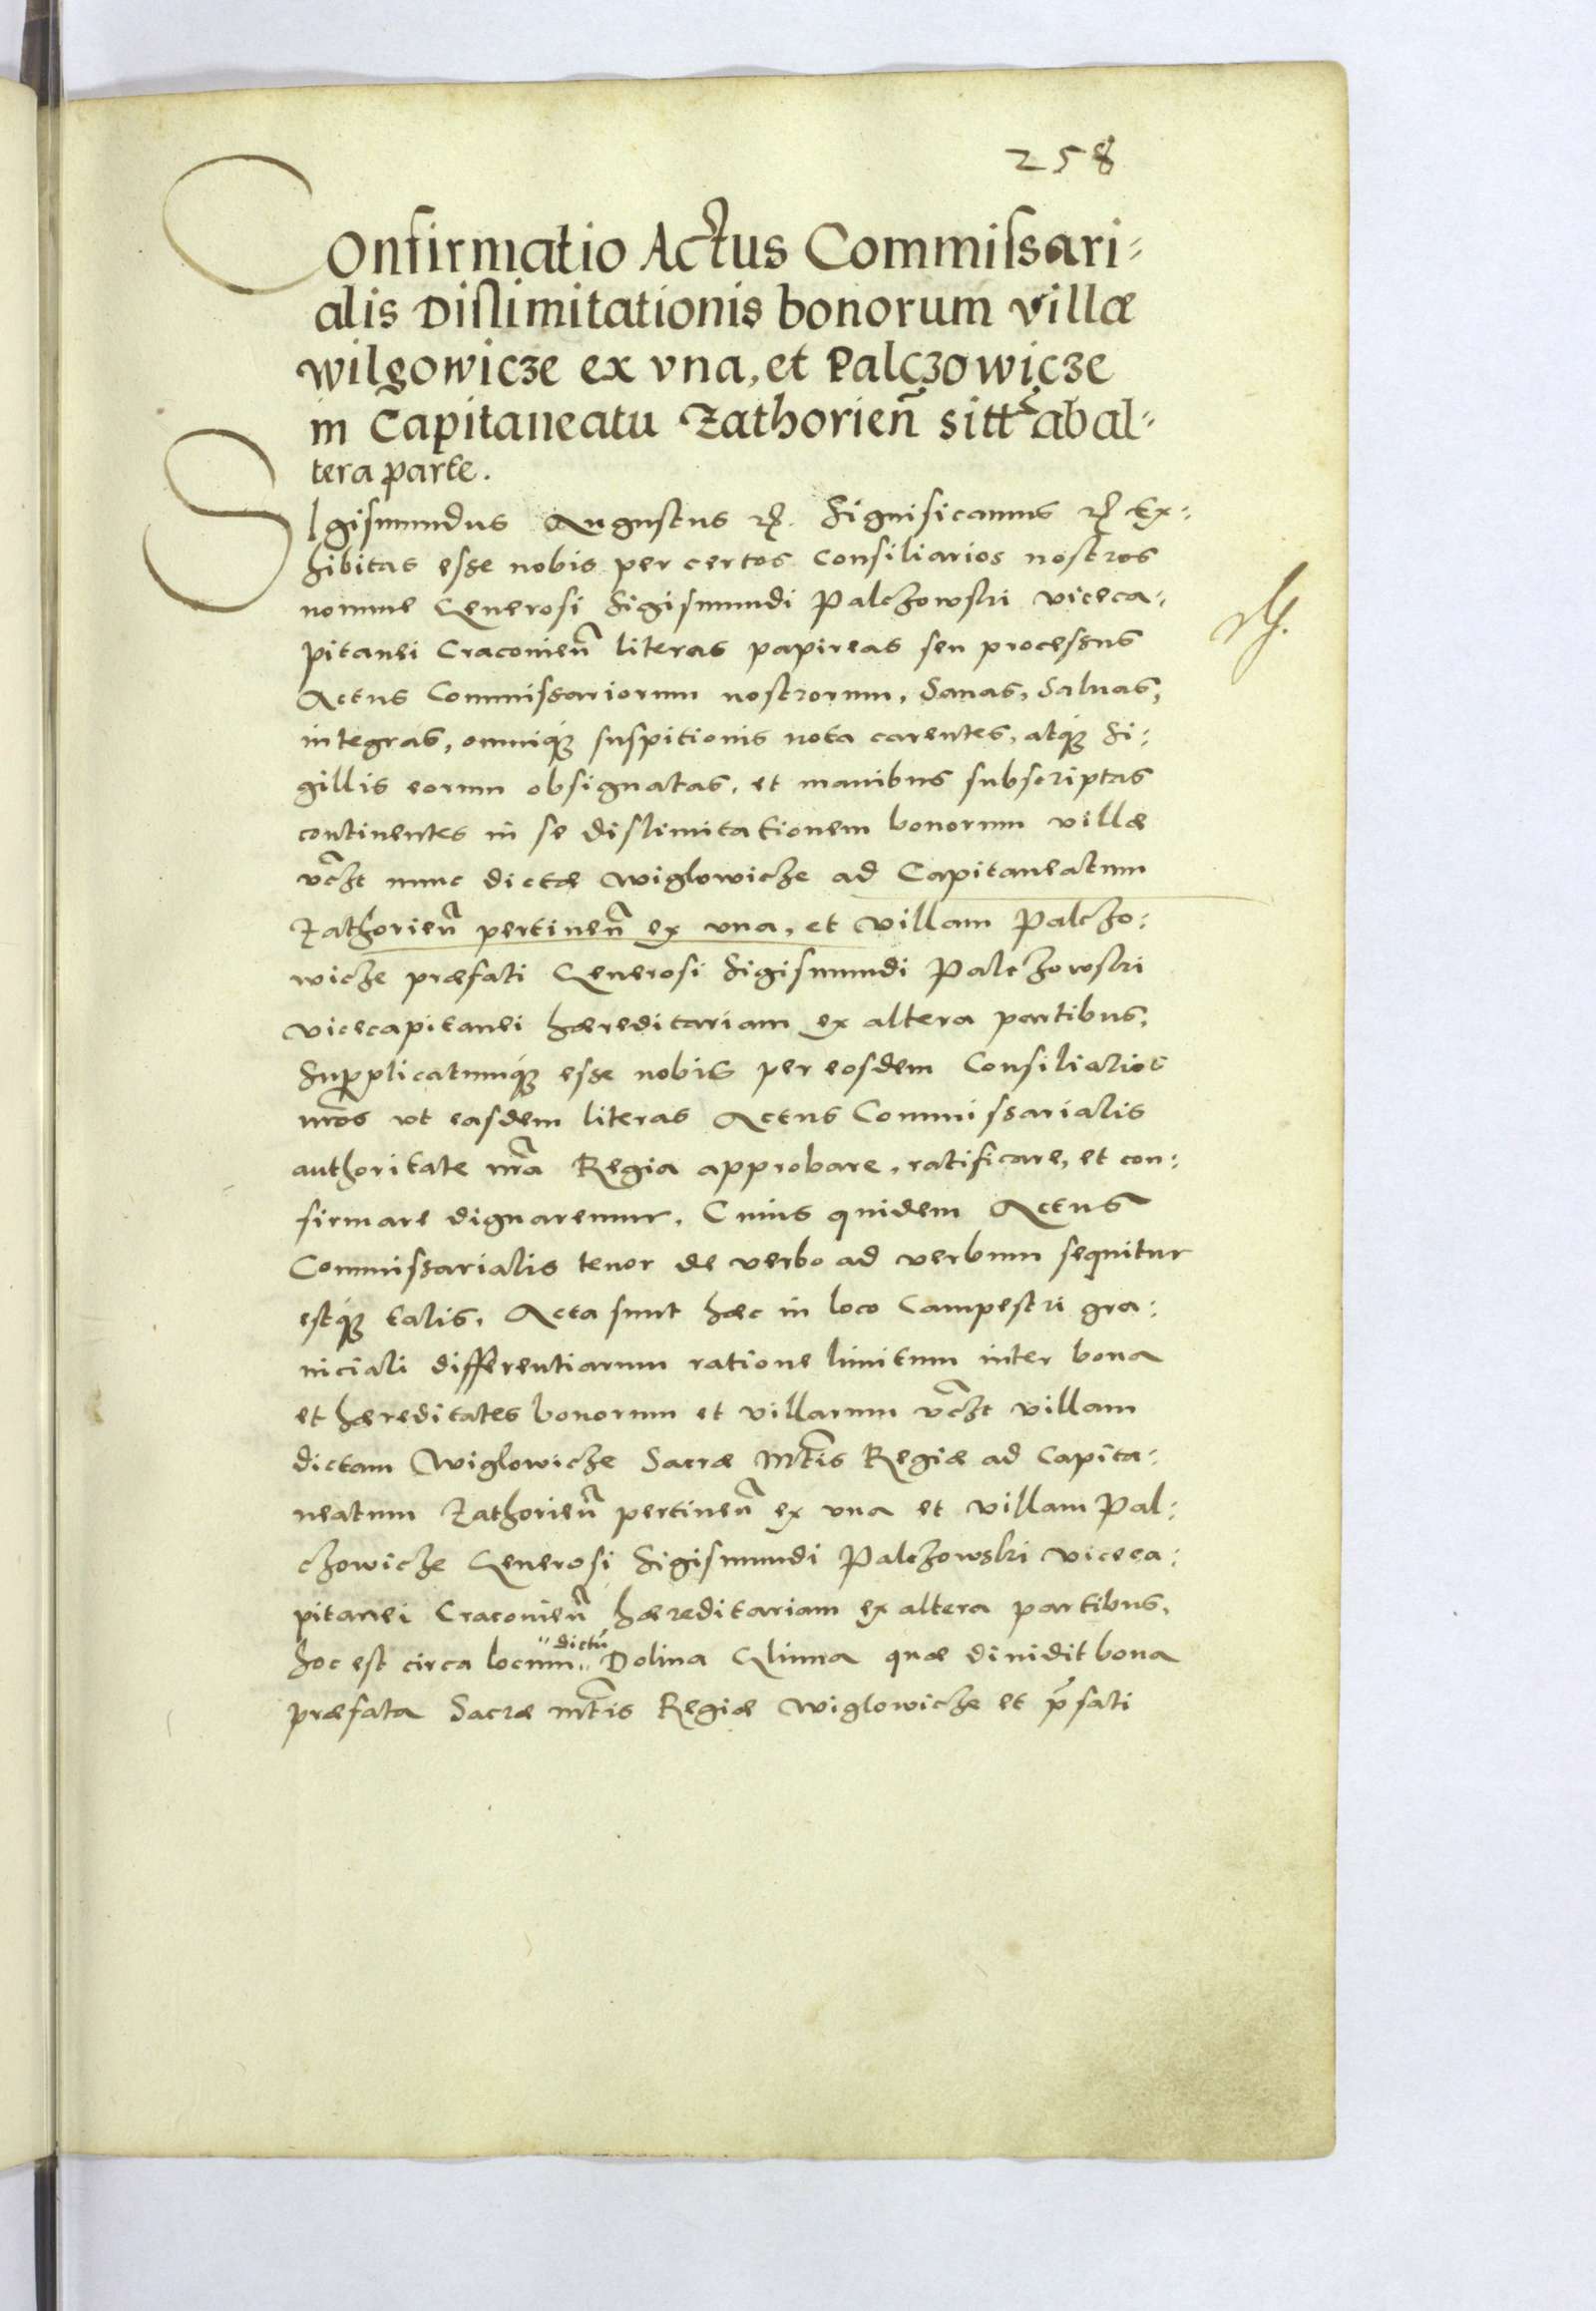 258
Confirmatio Actus Commissari-
alis Dislimitationis bonorum villæ
Wilgowicze ex vna, et Palczowicze
in Capitaneatu Zathorien̄ sitt ab al-
tera parte.
SIgismundus Augustus Significamus Ex-
hibitas esse nobis per certos Consiliarios nostros
nomine Generosi Sigismundi Palczowski viceca-
pitanei Cracouien̄ literas papireas seu processus
Actus Commissariorum nostrorum, Sanas, Saluas,
integras, omniq; suspitionis nota carentes, atq; Si-
gillis eorum obsignatas, et manibus subscriptas
continentes in se dislimitationem bonorum villæ
vczt nunc dictæ Wiglowicze ad Capitaneatum
Zathorien̄ pertinen̄ ex vna, et villam Palczo-
wicze præfati Generosi Sigismundi Palczowski
vicecapitanei hæreditariam ex altera partibus,
Supplicatumq; esse nobis per eosdem Consiliarios
nr̄os vt easdem literas Actus Commissarialis
authoritate nr̄a Regia approbare, ratificare, et con-
firmare dignaremur. Cuius quidem Actus
Commissarialis tenor de verbo ad verbum sequitur
estq; talis. Acta sunt hæc in loco Campestri gra-
niciali differentiarum ratione limitum inter bona
et hæreditates bonorum et villarum vczt villam
dictam Wiglowicze Sacræ Mt̄is Regiæ ad Capita-
neatum Zathorien̄ pertinen̄ ex vna et villam Pal-
czowicze Generosi Sigismundi Palczowski viceca-
pitanei Cracouien̄ hæreditariam ex altera partibus,
hoc est circa locum dictū Dolina Glinna quæ diuidit bona
præfata Sacræ Mt̄is Regiæ Wiglowicze et p̄fati